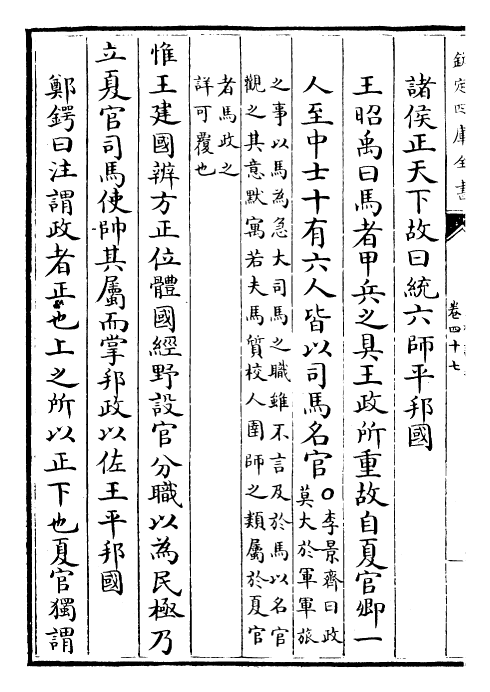 欽定四庫全書
卷四十七
諸侯正天下故曰統六師平邦國
王昭禹曰馬者甲兵之具王政所重故自夏官卿一
人至中士十有六人皆以司馬名官○李景齊曰政
莫大於軍軍旅
之事以馬為急大司馬之職雖不言及於馬以名官
觀之其意默寓若夫馬質校人圉師之類屬於夏官
者馬政之
詳可覆也
惟王建國辨方正位體國經野設官分職以為民極乃
立夏官司馬使帥其屬而掌邦政以佐王平邦國
鄭鍔曰注謂政者正也上之所以正下也夏官獨謂